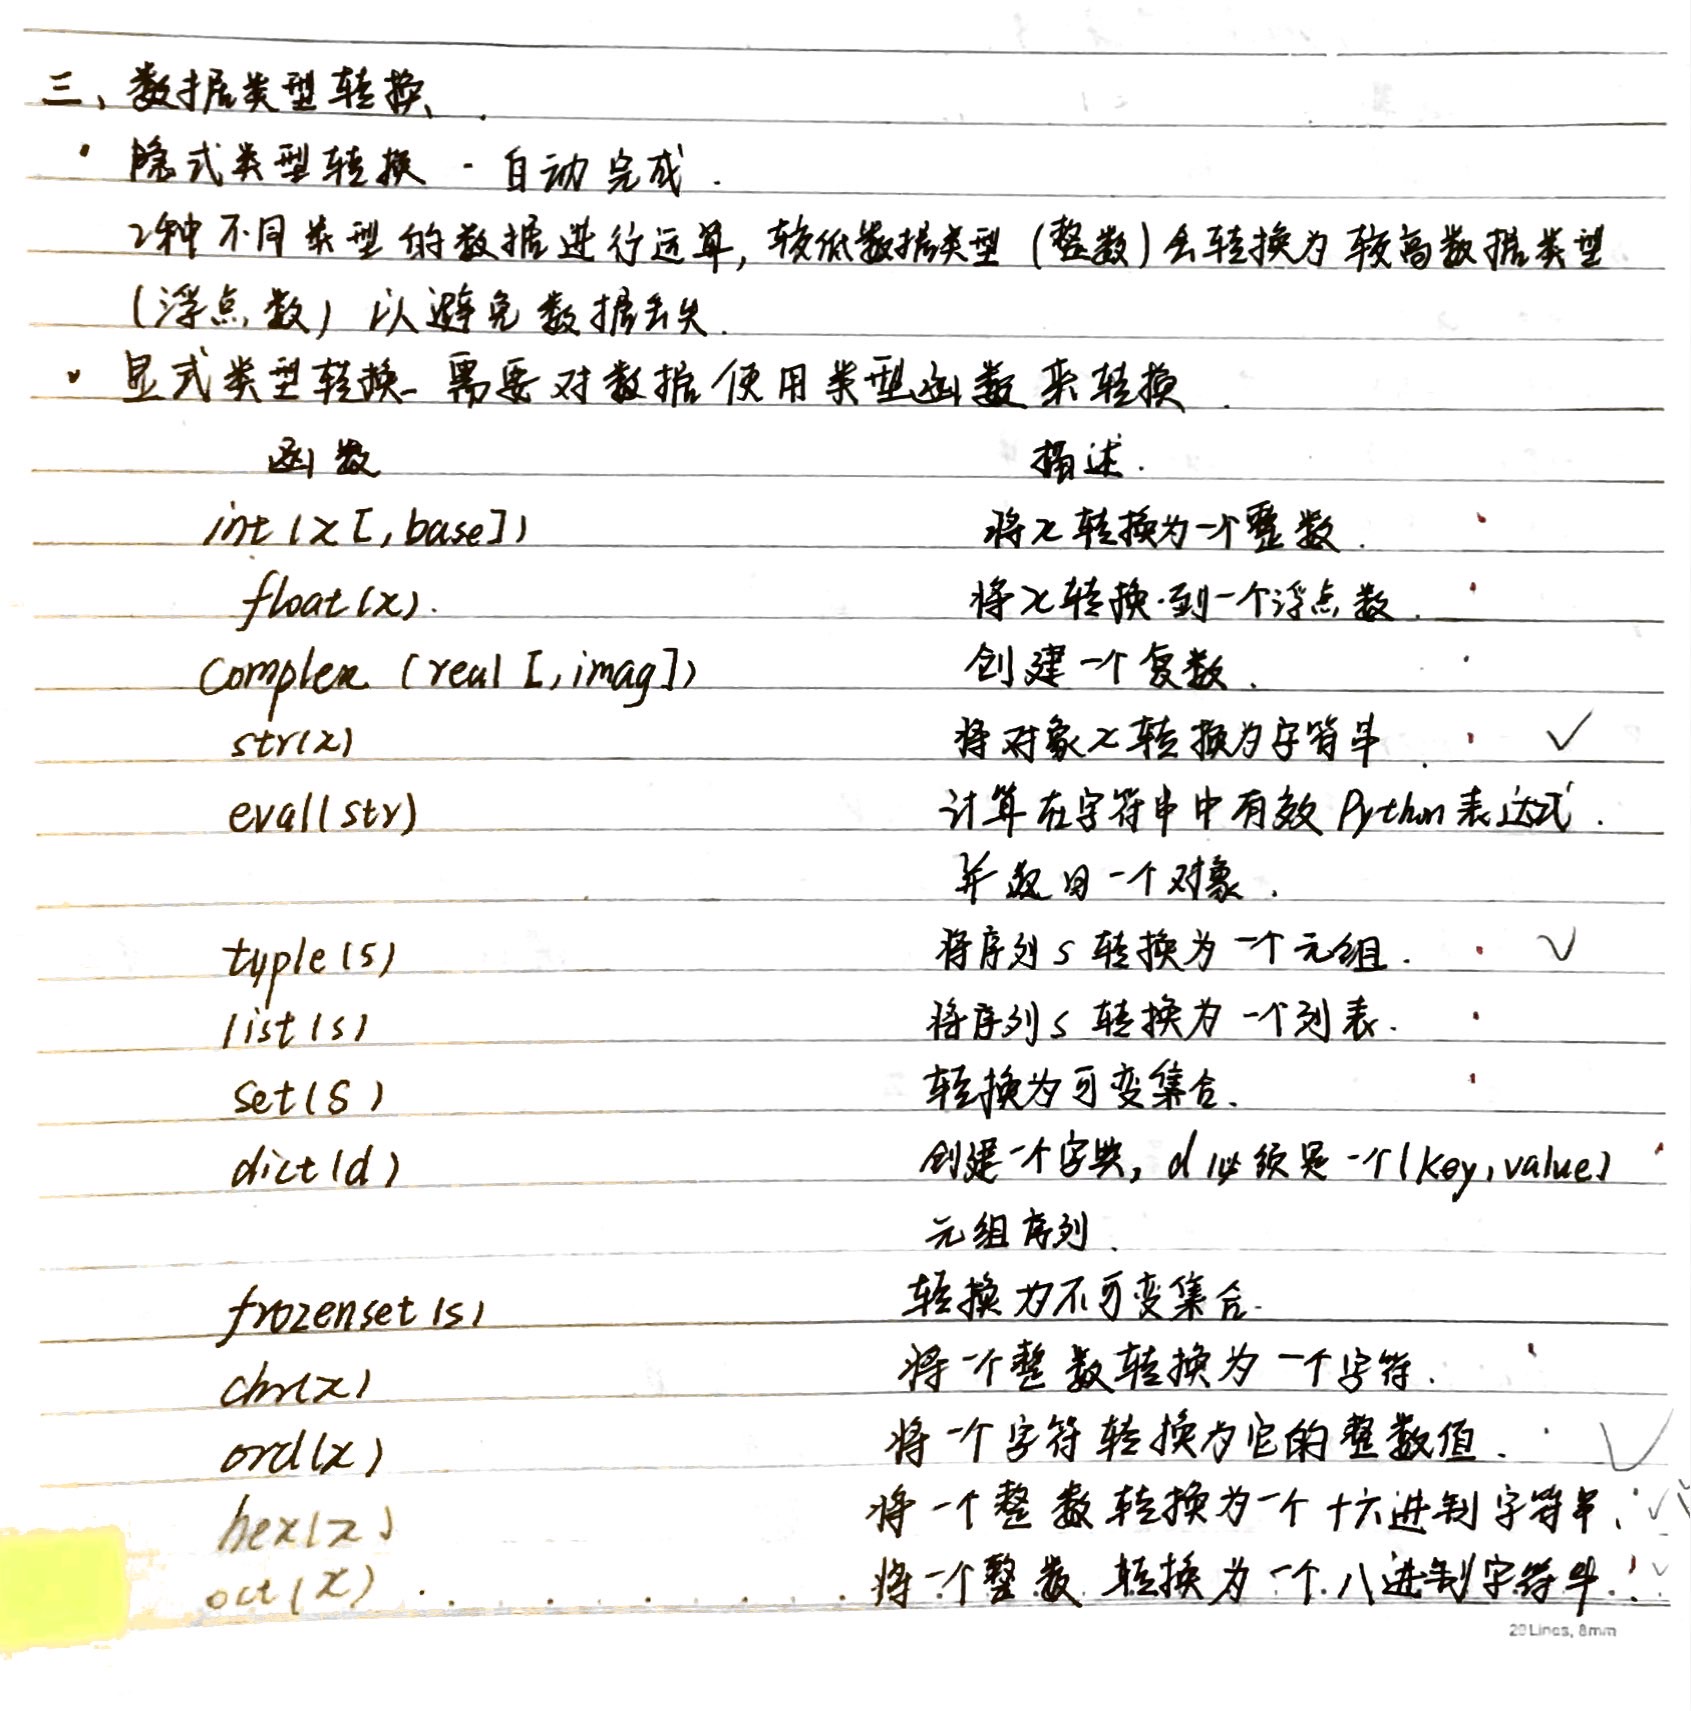 三、数据类型转换.
· 隐式类型转换 - 自动完成.
2种不同类型的数据进行运算, 较低数据类型 (整数) 会转换为较高数据类型
(浮点数) 以避免数据丢失.
· 显式类型转换 - 需要对数据使用类型函数来转换.
函数 描述.
int(x[,base]) 将x转换为一个整数.
float(x). 将x转换到一个浮点数.
complex (real[,imag]) 创建一个复数.
str(x) 将对象x转换为字符串. ✓
eval(str) 计算在字符串中有效Python表达式.
并返回一个对象.
tuple(s) 将序列s转换为一个元组. ✓
list(s) 将序列s转换为一个列表.
set(s) 转换为可变集合.
dict(d) 创建一个字典, d必须是一个(key,value)
元组序列.
frozenset(s) 转换为不可变集合.
chr(x) 将一个整数转换为一个字符.
ord(x) 将一个字符转换为它的整数值. ✓
hex(x) 将一个整数转换为一个十六进制字符串. ✓
oct(x) 将一个整数转换为一个八进制字符串. ✓
29 Lines, 8mm